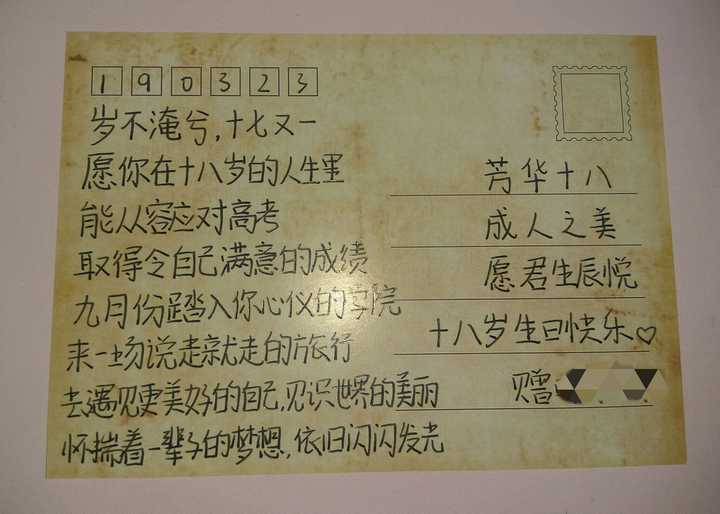 190323
岁不淹兮,十七又一
愿你在十八岁的人生里
能从容应对高考
取得令自己满意的成绩
九月份踏入你心仪的学院
来一场说走就走的旅行
去遇见更美好的自己,见识世界的美丽
怀揣着一辈子的梦想,依旧闪闪发光
芳华十八
成人之美
愿君生辰悦
十八岁生日快乐♡
赠